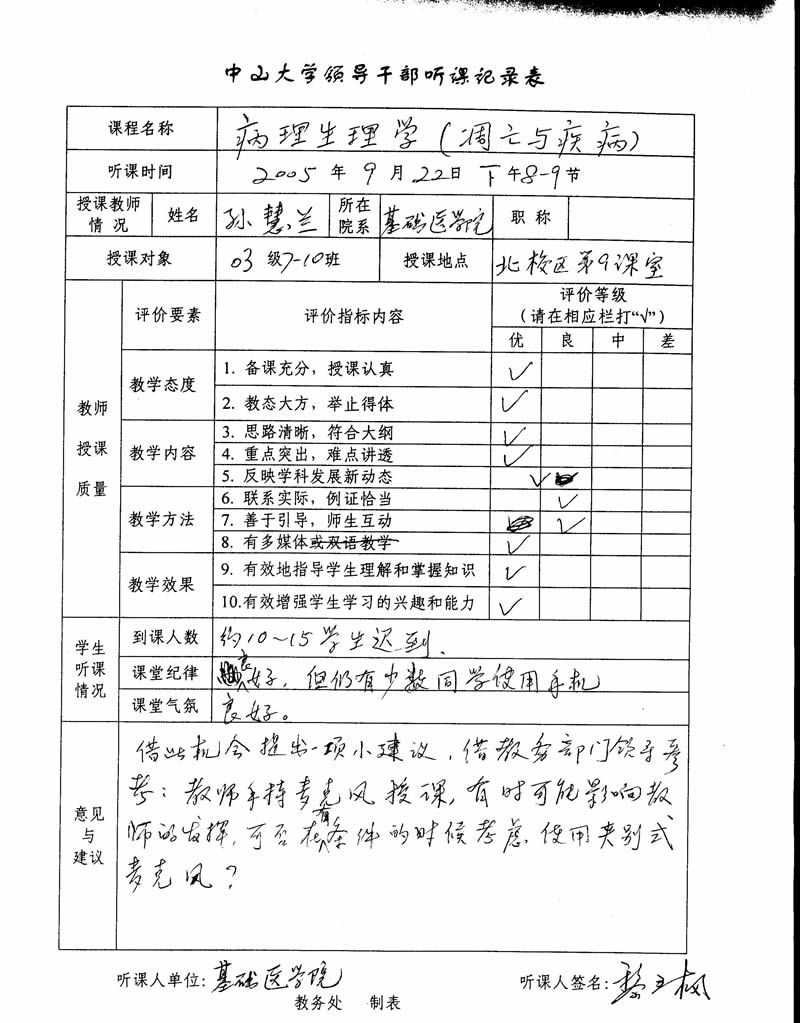 中山大学领导干部听课记录表
课程名称 病理生理学(凋亡与疾病)
听课时间 2005 年 9 月 22 日 下午 8-9 节
授课教师情况 姓名 孙慧兰 所在院系 基础医学院 职称
授课对象 03 级7-10班 授课地点 北校区第9课室
教师授课质量 评价要素 评价指标内容 评价等级
(请在相应栏打“√”)
优 良 中 差
教学态度 1. 备课充分，授课认真 ✓
2. 教态大方，举止得体 ✓
教学内容 3. 思路清晰，符合大纲 ✓
4. 重点突出，难点讲透 ✓
5. 反映学科发展新动态 ✓
教学方法 6. 联系实际，例证恰当 ✓
7. 善于引导，师生互动 ✓
8. 有多媒体或双语教学 ✓
教学效果 9. 有效地指导学生理解和掌握知识 ✓
10.有效增强学生学习的兴趣和能力 ✓
学生听课情况 到课人数 约10~15学生迟到.
课堂纪律 良好，但仍有少数同学使用手机
课堂气氛 良好。
意见与建议
借此机会提出一项小建议，借教务部门领导参
考：教师手持麦克风授课，有时可能影响教
师的发挥，可否在有条件的时候考虑使用夹别式
麦克风？
听课人单位：基础医学院 听课人签名：
教务处 制表